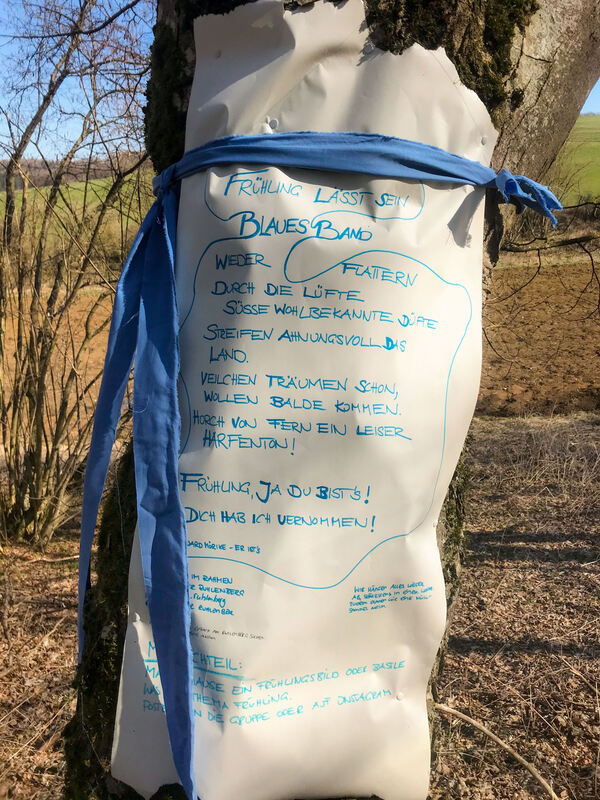 FRÜHLING LÄSST SEIN
BLAUES BAND
WIEDER FLATTERN
DURCH DIE LÜFTE
SÜSSE WOHLBEKANNTE DÜFTE
STREIFEN AHNUNGSVOLL DAS
LAND.
VEILCHEN TRÄUMEN SCHON,
WOLLEN BALDE KOMMEN.
HORCH VON FERN EIN LEISER
HARFENTON!
FRÜHLING, JA DU BIST'S!
DICH HAB ICH VERNOMMEN!
MÖRIKE - ER IST'S
IM RAHMEN
WIR HÄNGEN ALLES WIEDER
EIN FRÜHLINGSBILD ODER BASTLE
WAS THEMA FRÜHLING.
POSTE IN DIE GRUPPE ODER AUF INSTAGRAM